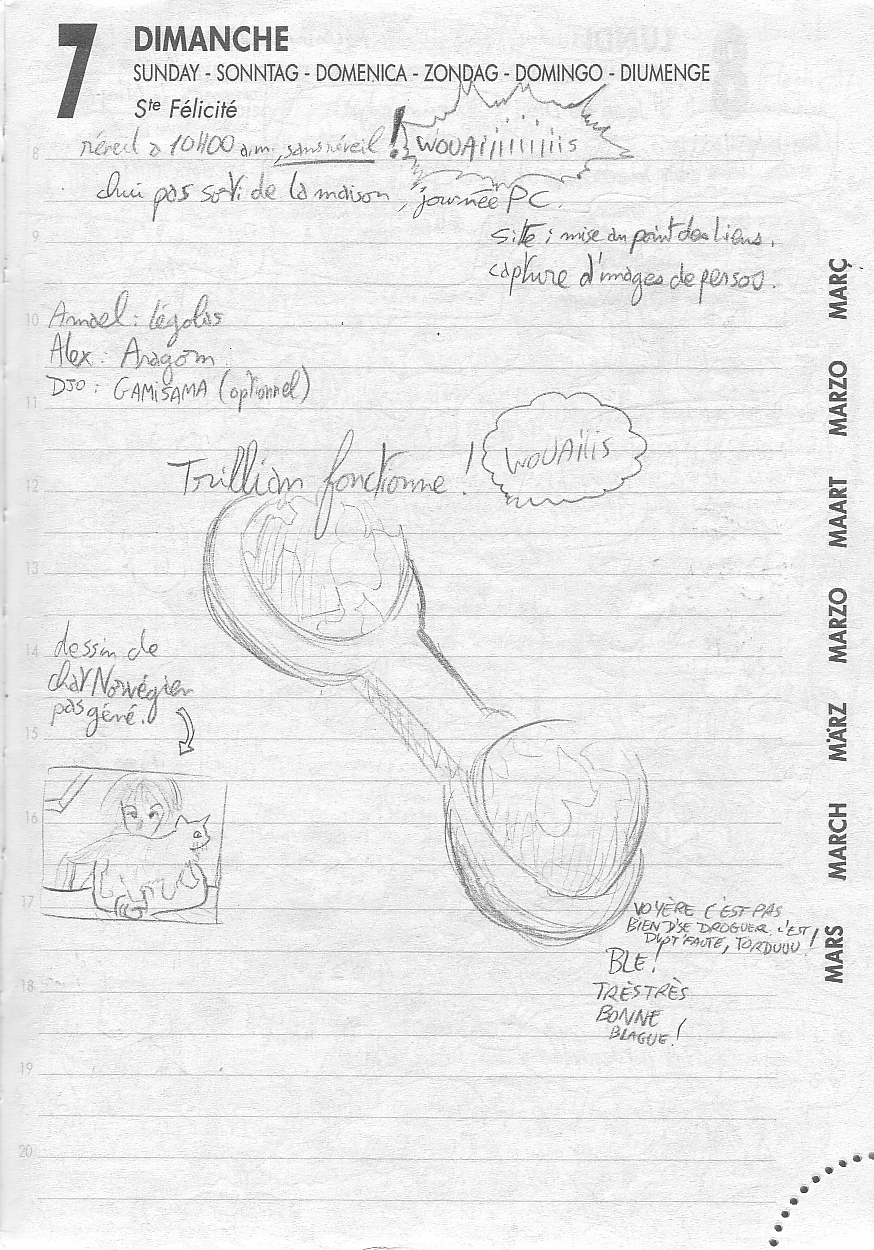 7 DIMANCHE
SUNDAY - SONNTAG - DOMENICA - ZONDAG - DOMINGO - DIUMENGE
Ste Félicité
réveil à 10H00 a.m., sans réveil !
WOUAiiiiiiiiiis
chui pas sorti de la maison, journée PC.
site : mise au point des liens.
capture d'images de persos.
Amael : Légolas
Alex : Aragorn
DJO : GAMISAMA (optionnel)
Trillian fonctionne !
WOUAiiis
dessin de
chat Norvégien
pas géné.
VOYÈRE C'EST PAS
BIEN D'SE DROGUER. C'EST
D'vot'FAUTE, TORDUUU !
BLE !
TRÈS TRÈS
BONNE
BLAGUE !
8
9
10
11
12
13
14
15
16
17
18
19
20
MARS MARCH MÄRZ MARZO MAART MARZO MARÇ